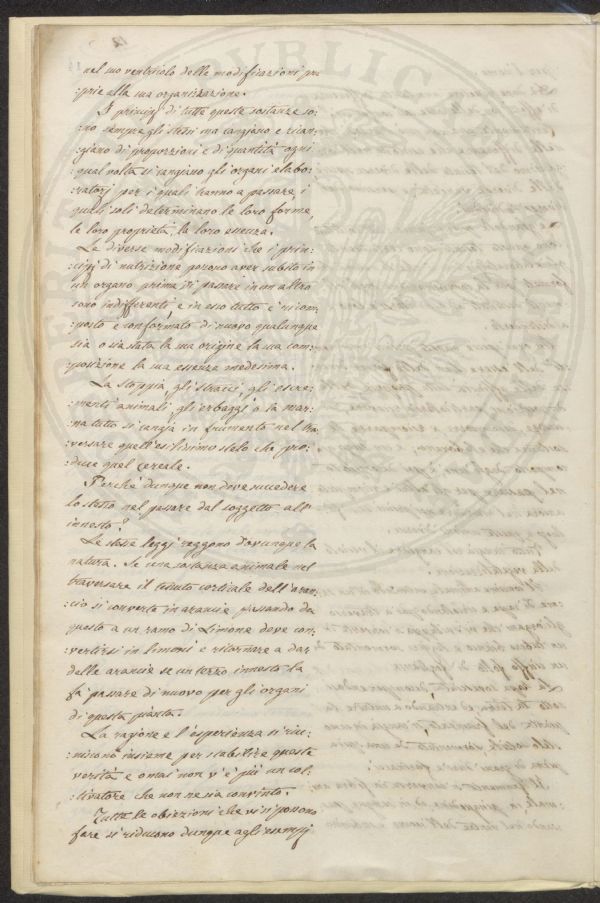 nel suo ventricolo delle modificazioni pro
:prie alla sua organizzazione.
I principj di tutte queste sostanze so:
:no sempre gli stessi ma cangiano e rican:
:giano di proporzioni e di quantità ogni
qual volta si cangiano gli organi elabo:
:ratorj per i quali hanno a passare i
quali soli determinano le loro forme,
le loro proprietà, la loro essenza.
Le diverse modificazioni che i prin:
:cipj di nutrizione possono aver subito in
un organo prima di passare in un altro
sono indifferenti e in esso tutto è ricom:
:posto e conformato di nuovo qualunque
sia o sia stata la sua origine la sua com:
:posizione la sua essenza medesima.
La stoppia, gli stracci, gli escre:
:menti animali, gli erbaggi o la mar:
:na tutto si cangia in frumento nel tra
:versare quell'esilissimo stelo che pro:
:duce quel cereale.
Perchè dunque non deve succedere
lo stesso nel passare dal soggetto all'
innesto?
Le stesse leggi reggono dovunque la
natura. Se una sostanza animale nel
traversare il tessuto corticale dell'aran:
:cio si converte in arancie passando da
questo a un ramo di Limone deve con:
:vertirsi in limoni e ritornare a dar
delle arancie se un terzo innesto la
fà passare di nuovo per gli organi
di questa pianta.
La ragione e l'esperienza si riu:
:niscono insieme per stabilire queste
verità e omai non v'è più un col:
:tivatore che non ne sia convinto.
Tutte le obiezioni che vi si possono
fare si riducono dunque agli esempj